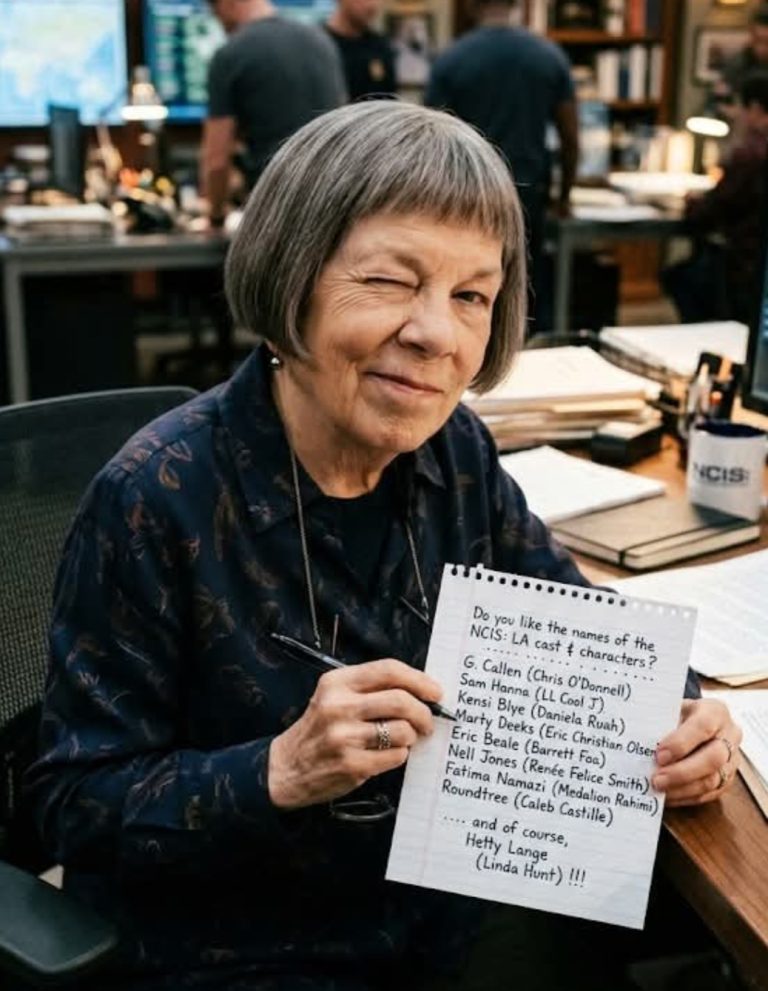 Do you like the names of the
NCIS: LA cast & characters?
. . . . . . . . . . . . . . . . . .
G. Callen (Chris O'Donnell)
Sam Hanna (LL Cool J)
Kensi Blye (Daniela Ruah)
Marty Deeks (Eric Christian Olsen
Eric Beale (Barrett Foa)
Nell Jones (Renée Felice Smith)
Fatima Namazi (Medalion Rahimi)
Roundtree (Caleb Castille)
.... and of course,
Hetty Lange
(Linda Hunt) !!!
NCIS: